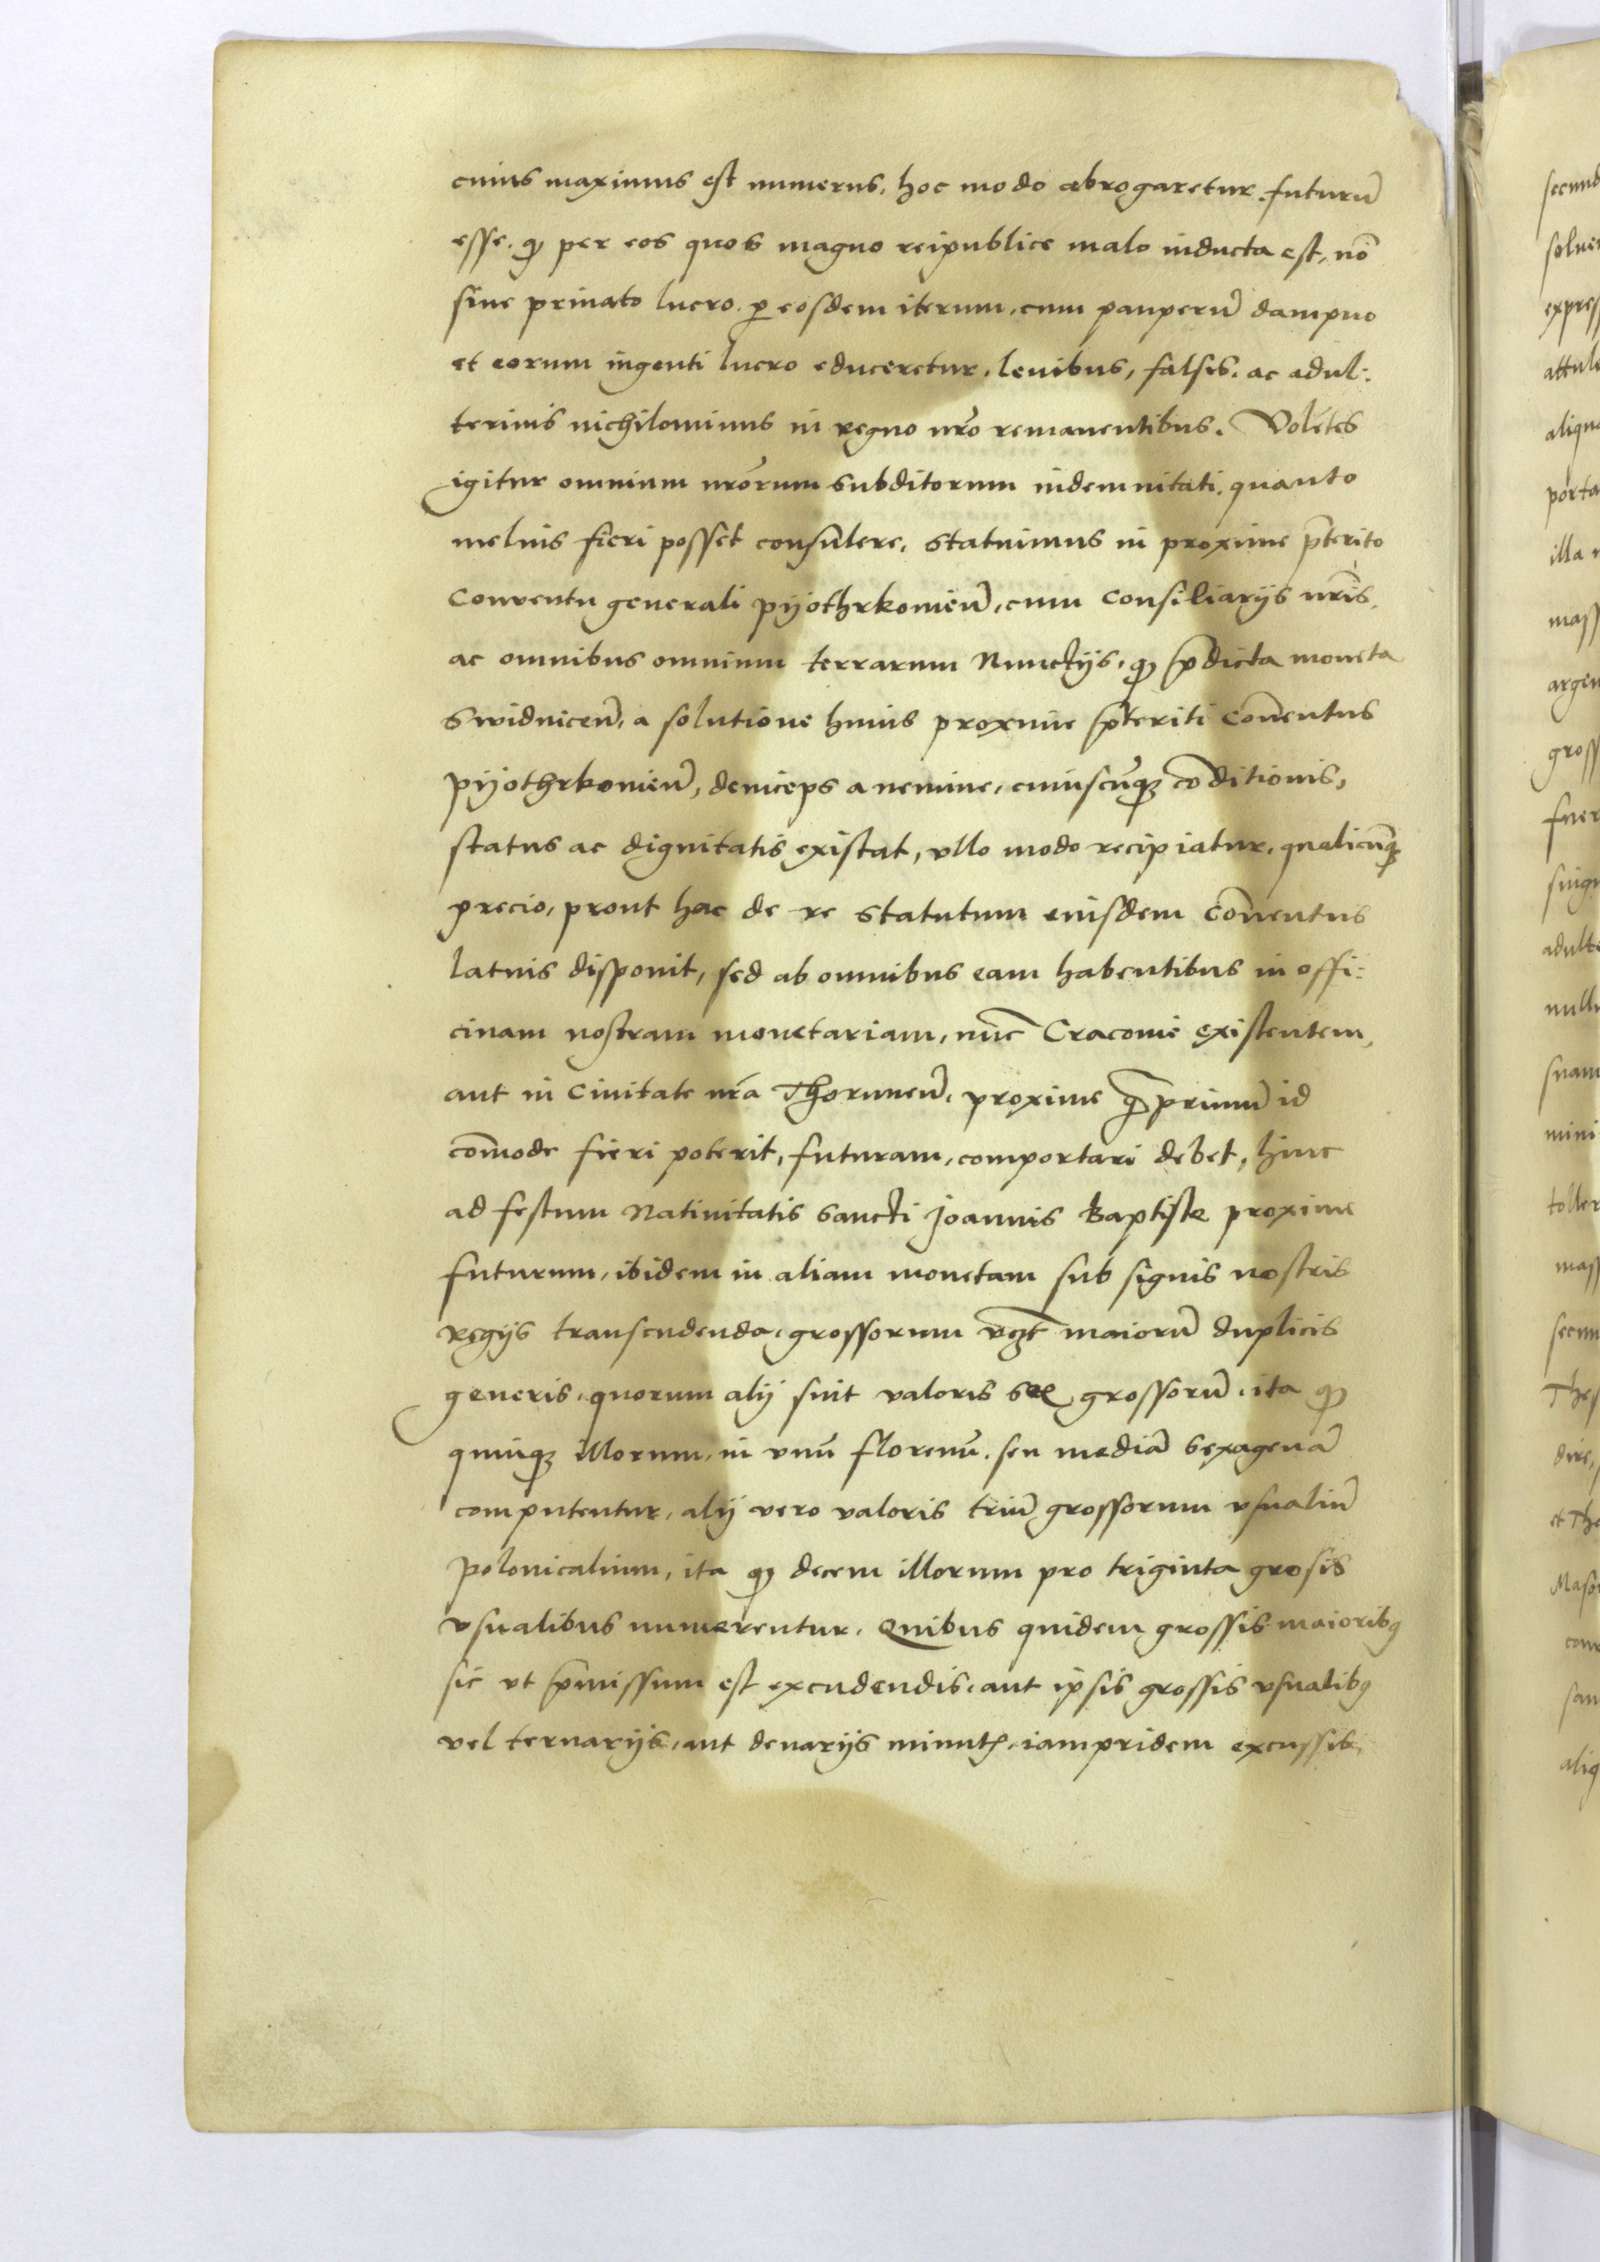 cuius maximus est numerus, hoc modo abrogaretur. futurū
esse. qȝ per eos quos magno reipublice malo inducta est, nō
sine priuato lucro. p̱ eosdem iterum, cum pauperū dampno
et eorum ingenti lucro educeretur, leuibus, falsis. ac adul:
terinis nichilominus in regno nrō remanentibus. Volētes
igitur omnium nrōrum subditorum indemnitati. quanto
melius fieri posset consulere, statuimus in proxime p̄terito
Conuentu generali pyothrkouieñ, cum Consiliarijs nrīs.
ac omnibus omnium terrarum Nunctijs, qȝ p̄dicta moneta
Swidniceñ, a solutione huius proxime p̄teriti Conūentus
pijothrkouieñ, deniceps a nemine, cuiuscūqȝ cōditionis,
status ac dignitatis existat, vllo modo recipiatur, qualicūqȝ
precio, prout hac de re statutum eiusdem Conūentus
latius disponit, sed ab omnibus eam habentibus in offi:
cinam nostram monetariam, nūc Craconie existentem,
aut in Ciuitate nrā Thoruneñ, proxime q̄primū id
com̄ode fieri poterit, futuram, comportari debet, hinc
ad festum Natiuitatis Sancti Joannis Baptiste proxime
futurum, ibidem in aliam monetam sub signis nostris
Regijs transcudenda, grossorum vzt maiorū duplicis
generis, quorum alij sint valoris sex grossorū, ita qȝ
quinqȝ illorum, in vnū florenū. seu mediā sexagenā
computentur, alij vero valoris triū grossorum vsualiū
polonicalium, ita qȝ decem illorum pro triginta grosis
vsualibus numerentur. Quibus quidem grossis maioribꝯ
sic vt p̄missum est excudendis, aut ipsis grossis vsualibꝯ
vel ternarijs, aut denarijs minutꝭ, iampridem excussib,
secund
expres
aliqu
porta
illa
mass
argen
gross
fuer
adulte
suam
mini
toller
mass
dire,
et Tho
aliq